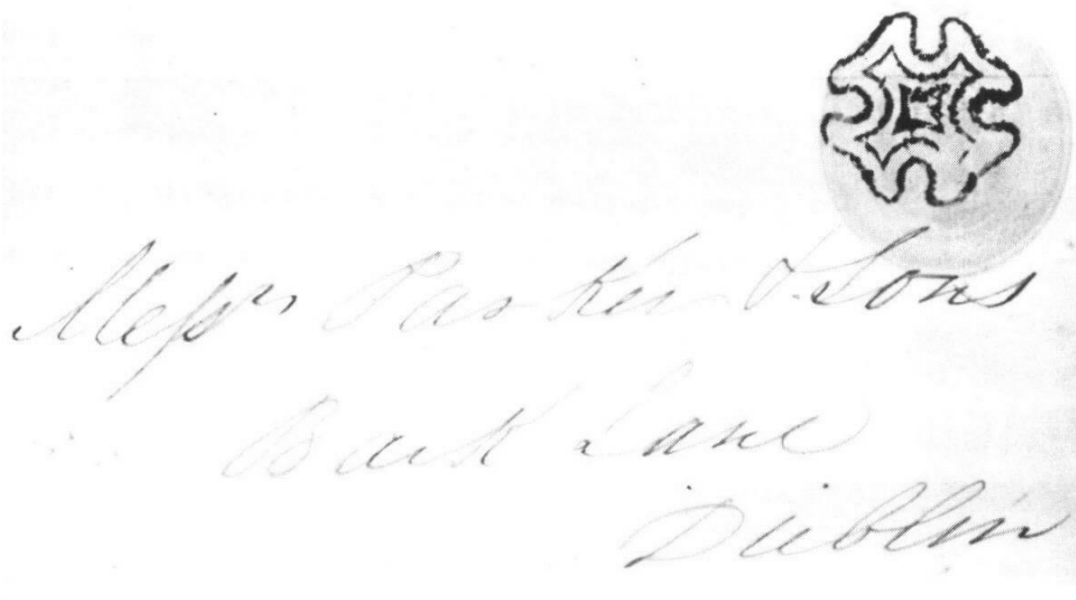 Messrs Parker & Sons
Back Lane
Dublin